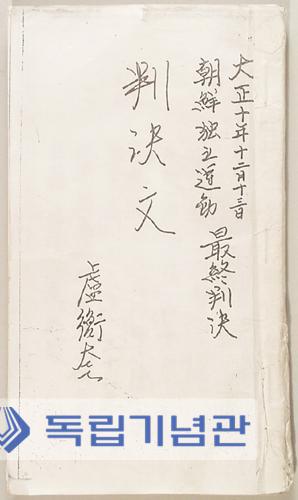 大正十年十二月十三日
朝鮮独立運動 最終判決
判決文
虛衡
독립기념관